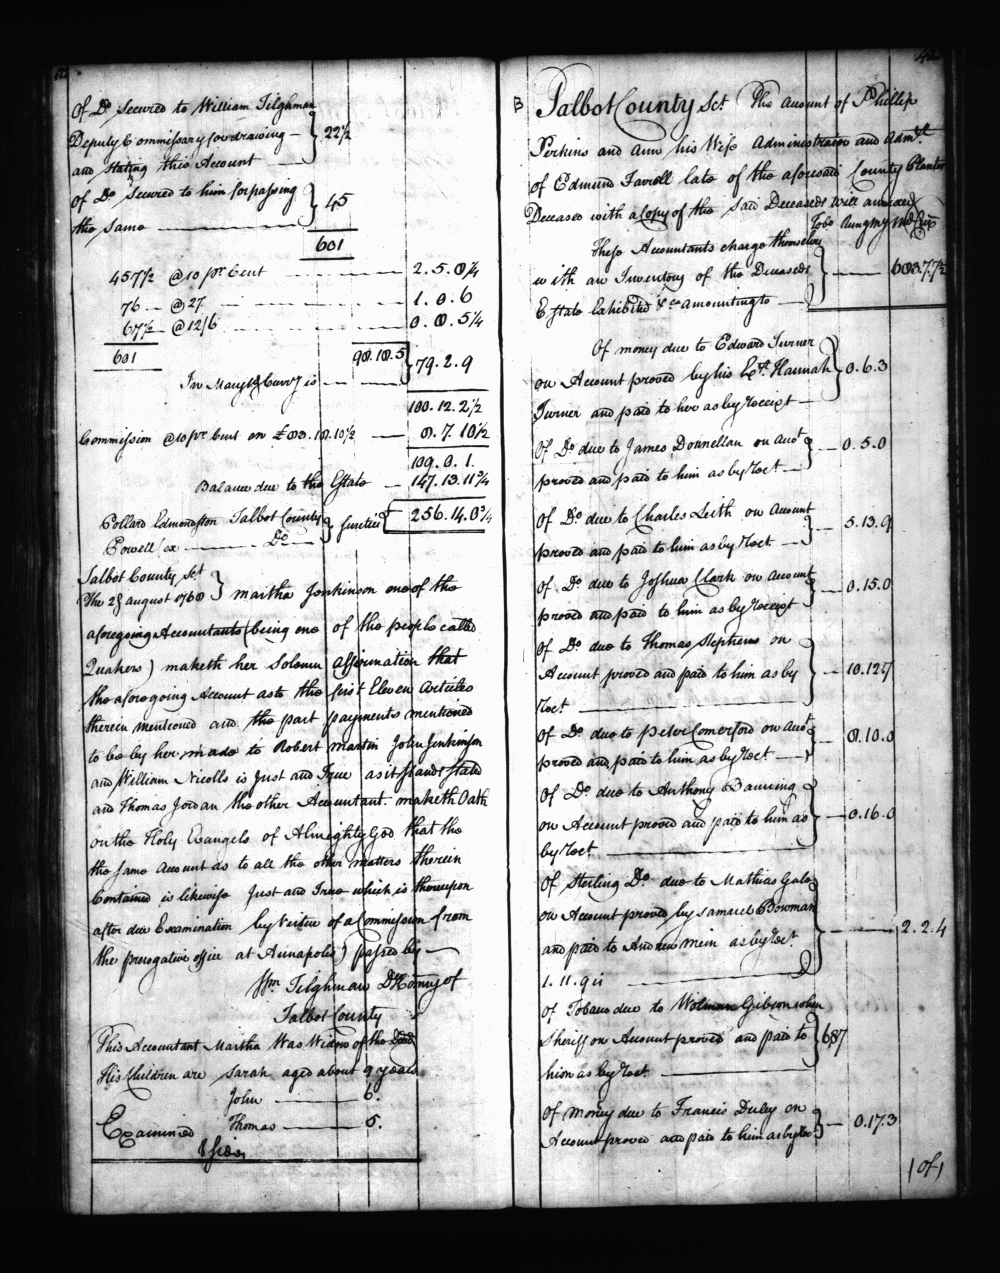 Of Do Secured to William Tilghman
Deputy Commissary for drawing — } 22½
and Stating this Account
of Do Secured to him for passing } 45
the Same
601
457½ @ 10 pr Cent 2.5.
76 — @ 27 1.0.6
67½ @ 12/6 0.8.5¼
601 90.10.5 } 79.2.9
In Maryld Curry is
100.12.2½
Commission @ 10 pr Cent on £ 8.7.10½
109.0.1.
Balance due to the Estate — 147.13.11¾
Pollard Edmondston Talbot County } Sureties 256.14.0¾
Powell Cox — Do
Talbot County Sct
The 28 august 1760 } Martha Jenkinson one of the
aforegoing Accountants (being one of the people called
Quakers) maketh her Solemn affirmation that
the aforegoing Account as to the first Eleven articles
therein mentioned and the part payments mentioned
to be by her made to Robert Martin John Jenkinson
and William Nicolls is Just and True as it stands stated
and Thomas Jordan the other Accountant maketh Oath
on the Holy Evangels of Almighty God that the
the same Account as to all the other matters therein
Contained is likewise Just and True which is thereupon
after due Examination by Virtue of a Commission from
the prerogative office at Annapolis) passed by —
Wm Tilghman DComry of
Talbot County
This Accountant Martha Was Widow of the Decd
His Children are Sarah aged about 9 years
John — 6.
Thomas — 5.
Examined
8 Sides
B Talbot County Sct The account of Phillip
Perkins and Ann his Wife Administrator and Admx
of Edmund Farrell late of the aforesaid County Planter
Deceased with a Copy of the said Deceaseds Will annexed
These Accountants charge themselves
with an Inventory of the Deceaseds } 603.7.7½
Estate Exhibited &ca amounting to —
Of money due to Edward Turner
on Account proved by his Ex. Hannah } 0.6.3
Turner and paid to her as by Receipt —
Of Do due to James Donnellan on Acct } 0.5.0
proved and paid to him as by Rect —
Of Do due to Charles Leith on Account } 5.13.9
proved and paid to him as by Rect —
Of Do due to Joshua Clark on Account } 0.15.0
proved and paid to him as by Receipt
Of Do due to Thomas Stephens on
Account proved and paid to him as by } 10.12.7
Rect
Of Do due to Peter Comerford on Acct } 0.10.0
proved and paid to him as by Rect —
Of Do due to Anthony Banning
on Account proved and paid to him as } 0.16.0
by Rect
Of Sterling Do due to Mathias Gale
on Account proved by Samuel Bowman
and paid to Andrew Mein as by Rect } 2.2.4
1.11.9 is
Of Tobacco due to Woolman Gibson when
Sheriff on Account proved and paid to } 687
him as by Rect
Of money due to Francis Duley on } 0.17.3
Account proved and paid to him as by Rect
(of)